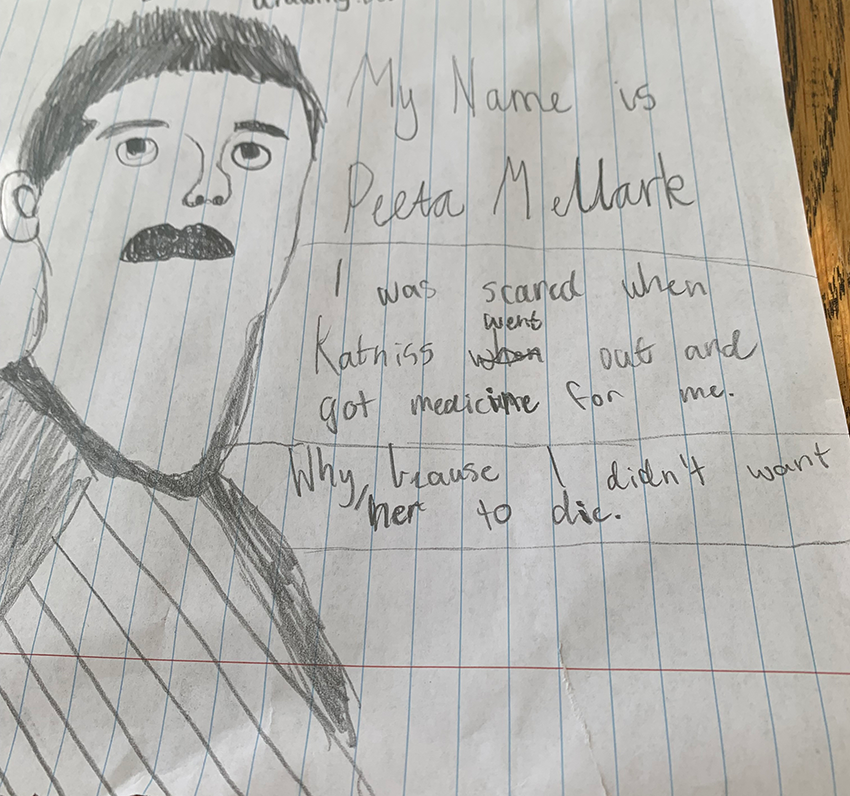 My Name is
Peeta Mellark
I was scared when
Katniss went out and
got medicine for me.
Why, because I didn't want
her to die.